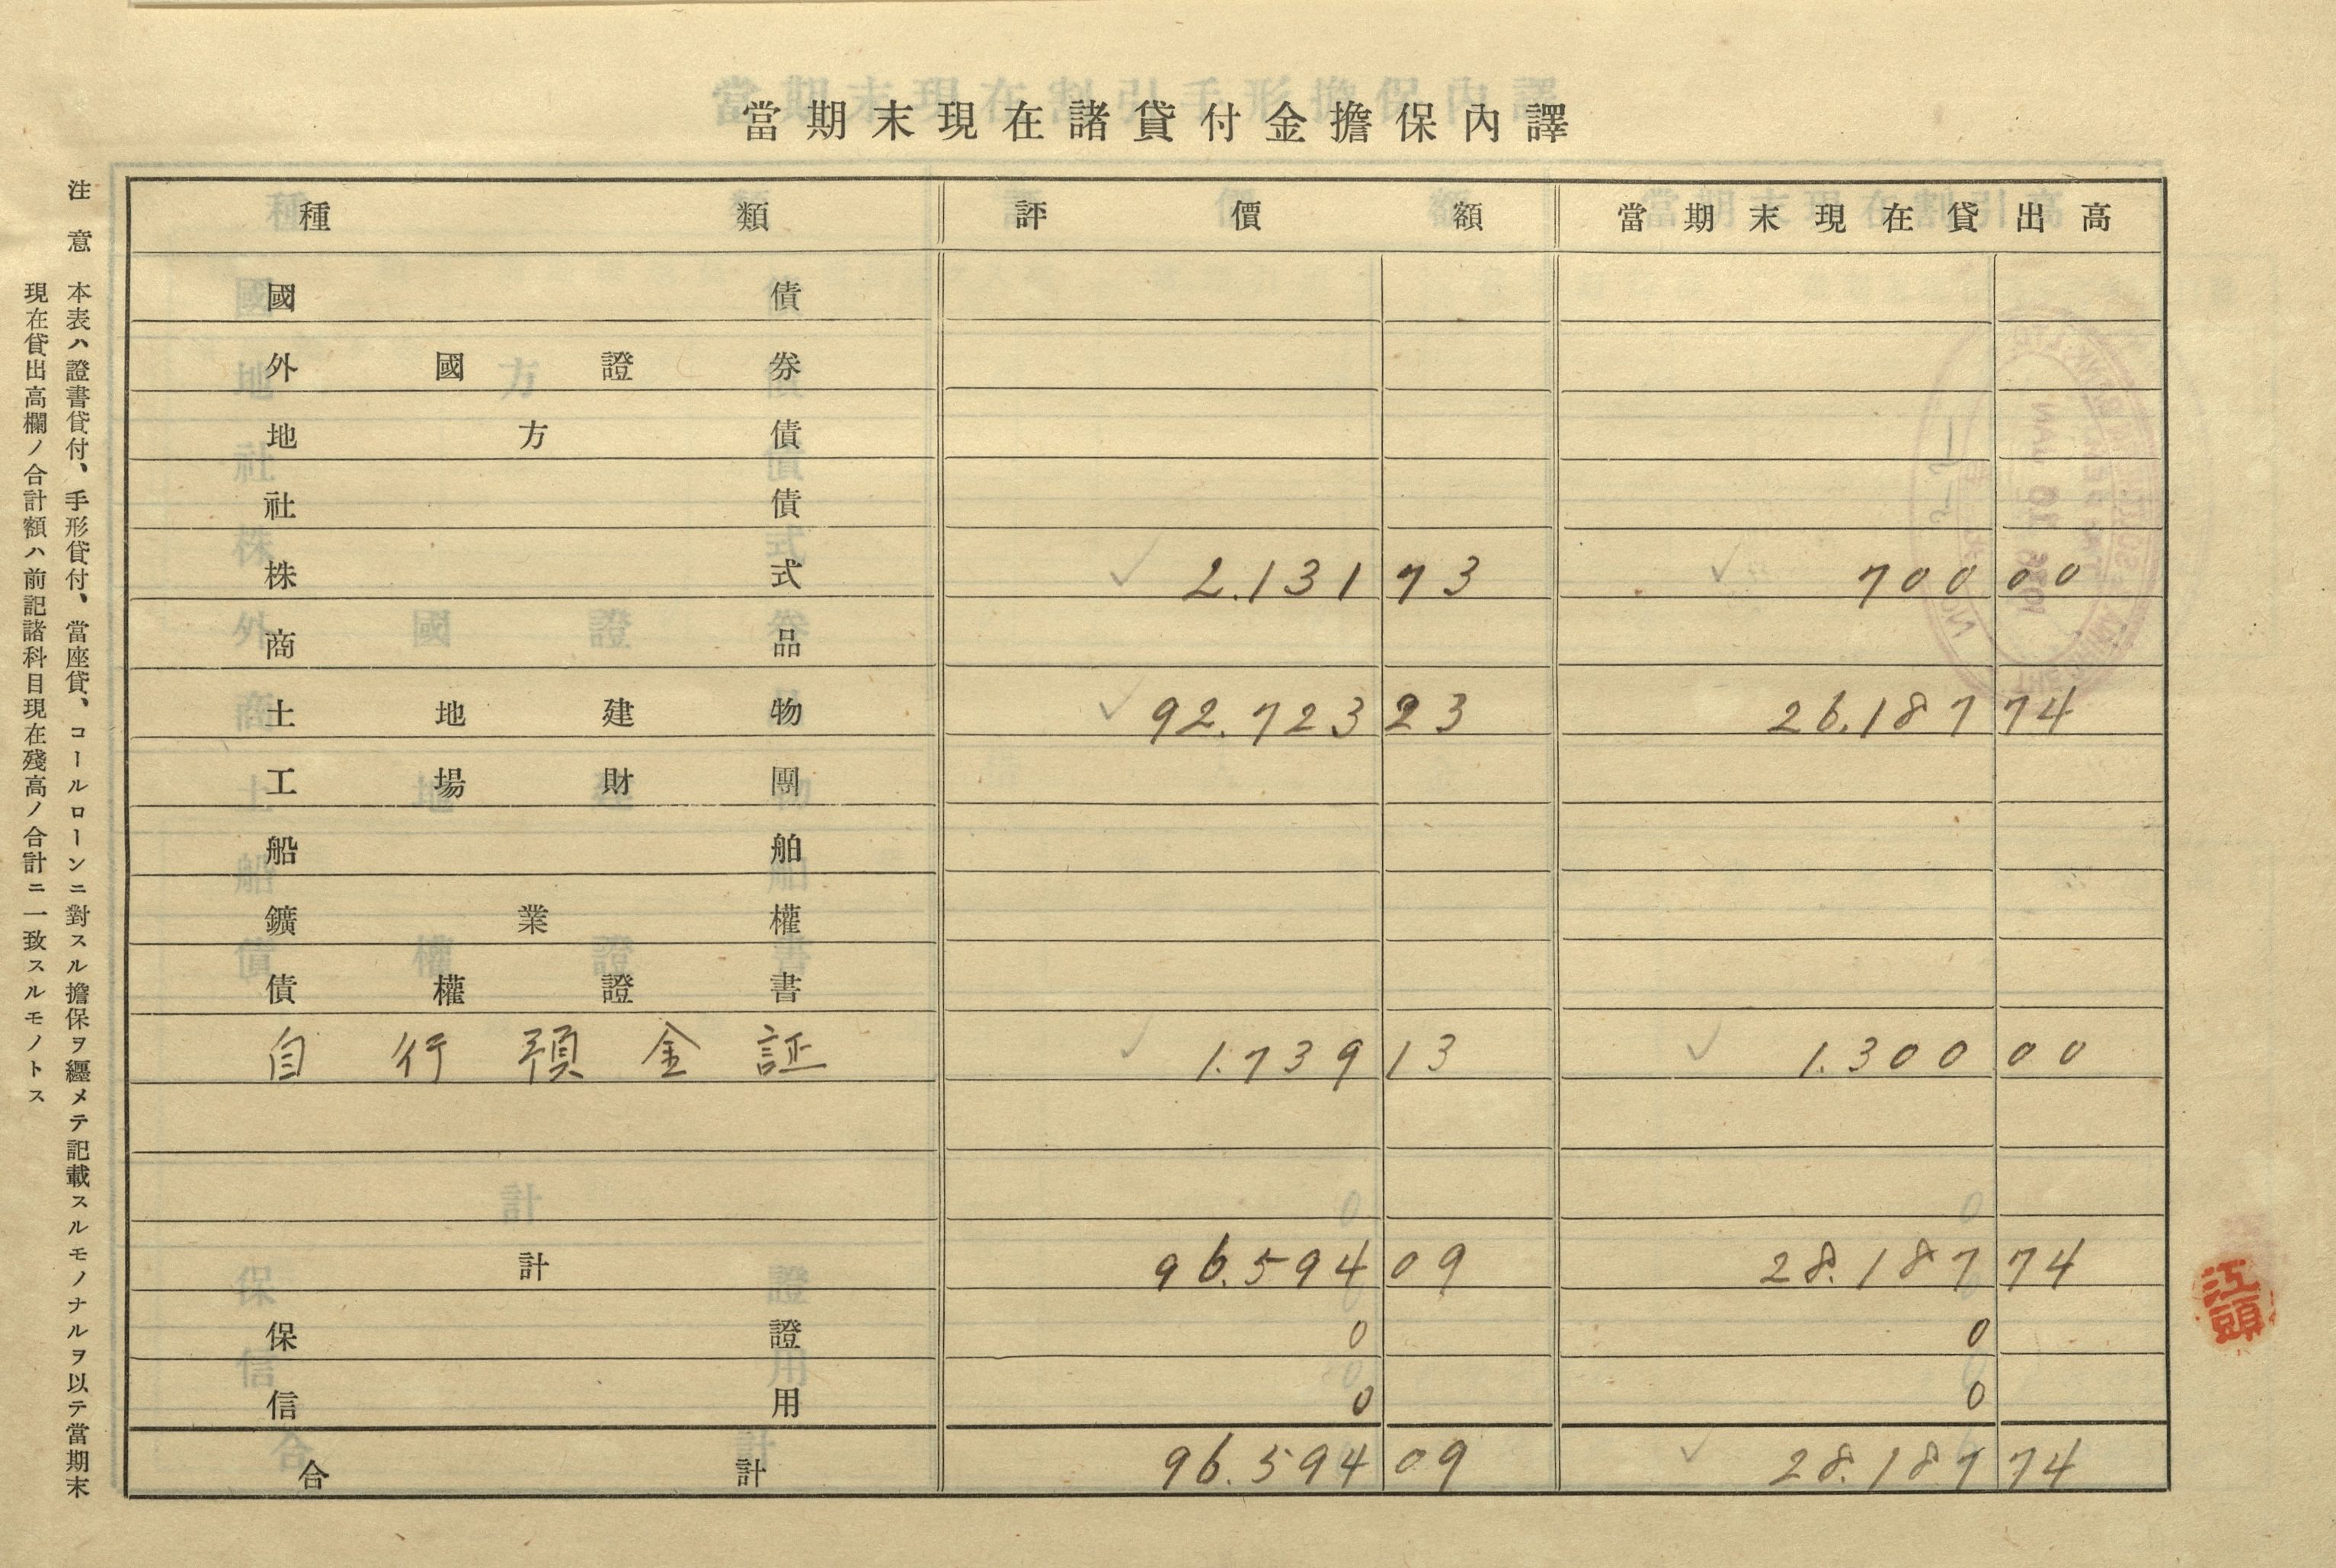 當期末現在諸貸付金擔保內譯
種類 評價額 當期末現在貸出高
國債
外國證券
地方債
社債
株式 2.131 73 700 00
商品
土地建物 92.723 23 26.187 74
工場財團
船舶
鑛業權
債權證書
自行預金証 1.739 13 1.300 00
計 96.594 09 28.187 74
保證 0 0
信用 0 0
合計 96.594 09 28.187 74
注意 本表ハ證書貸付、手形貸付、當座貸、コールローンニ對スル擔保ヲ纒メテ記載スルモノナルヲ以テ當期末
現在貸出高欄ノ合計額ハ前記諸科目現在殘高ノ合計ニ一致スルモノトス
江頭